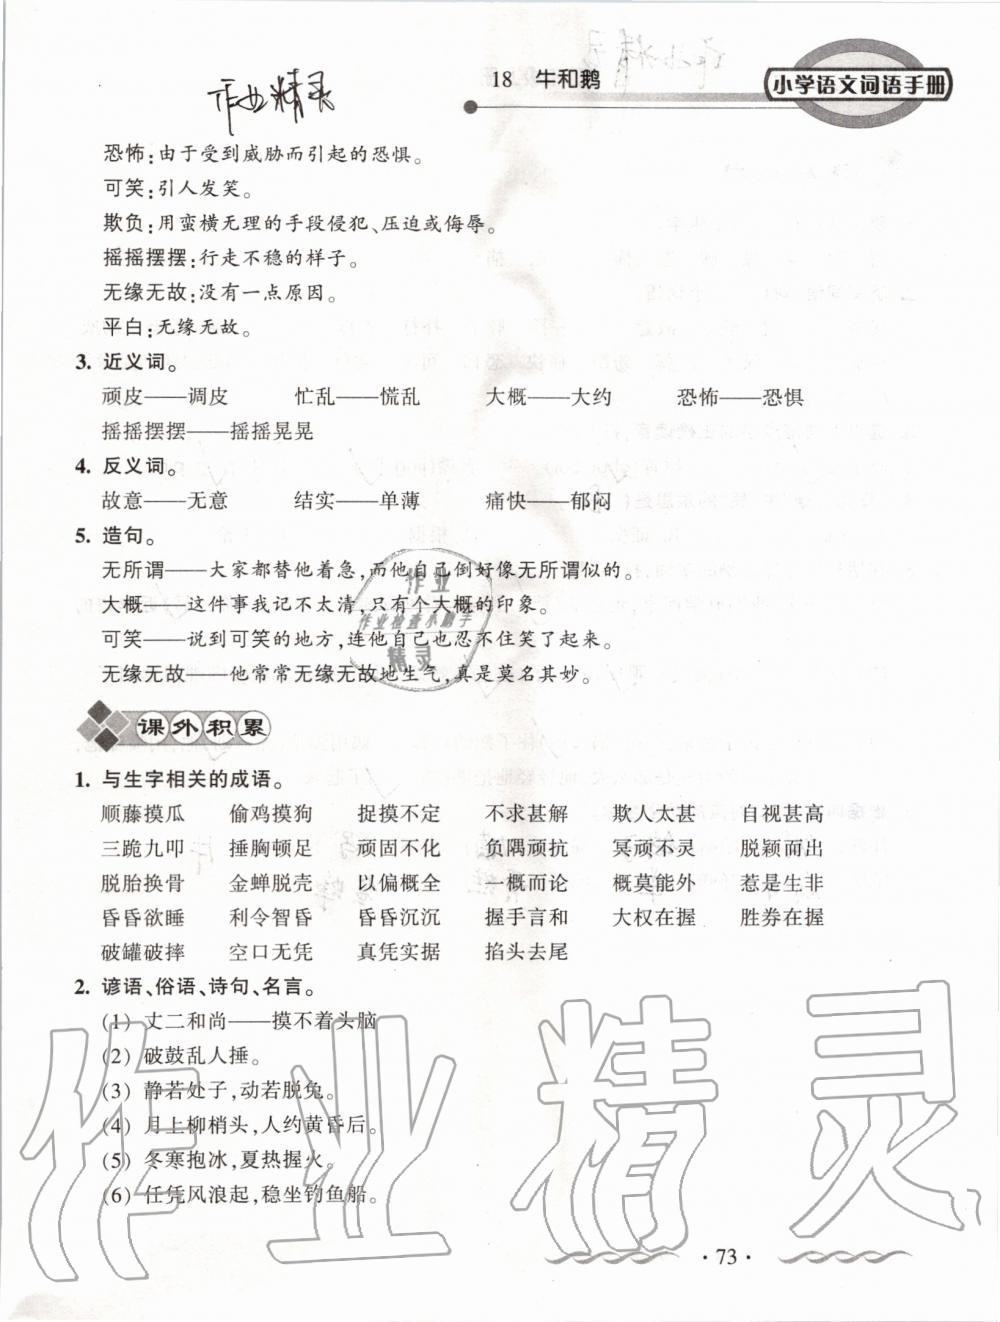 18 牛和鹅
小学语文词语手册
作业精灵
恐怖:由于受到威胁而引起的恐惧。
可笑:引人发笑。
欺负:用蛮横无理的手段侵犯、压迫或侮辱。
摇摇摆摆:行走不稳的样子。
无缘无故:没有一点原因。
平白:无缘无故。
3. 近义词。
顽皮——调皮 忙乱——慌乱 大概——大约 恐怖——恐惧
摇摇摆摆——摇摇晃晃
4. 反义词。
故意——无意 结实——单薄 痛快——郁闷
5. 造句。
无所谓——大家都替他着急,而他自己倒好像无所谓似的。
大概——这件事我记不太清,只有个大概的印象。
可笑——说到可笑的地方,连他自己也忍不住笑了起来。
无缘无故——他常常无缘无故地生气,真是莫名其妙。
作业
作业检查小助手
精灵
课外积累
1. 与生字相关的成语。
顺藤摸瓜 偷鸡摸狗 捉摸不定 不求甚解 欺人太甚 自视甚高
三跪九叩 捶胸顿足 顽固不化 负隅顽抗 冥顽不灵 脱颖而出
脱胎换骨 金蝉脱壳 以偏概全 一概而论 概莫能外 惹是生非
昏昏欲睡 利令智昏 昏昏沉沉 握手言和 大权在握 胜券在握
破罐破摔 空口无凭 真凭实据 掐头去尾
2. 谚语、俗语、诗句、名言。
(1) 丈二和尚——摸不着头脑
(2) 破鼓乱人捶。
(3) 静若处子,动若脱兔。
(4) 月上柳梢头,人约黄昏后。
(5) 冬寒抱冰,夏热握火。
(6) 任凭风浪起,稳坐钓鱼船。
作业精灵
·73·